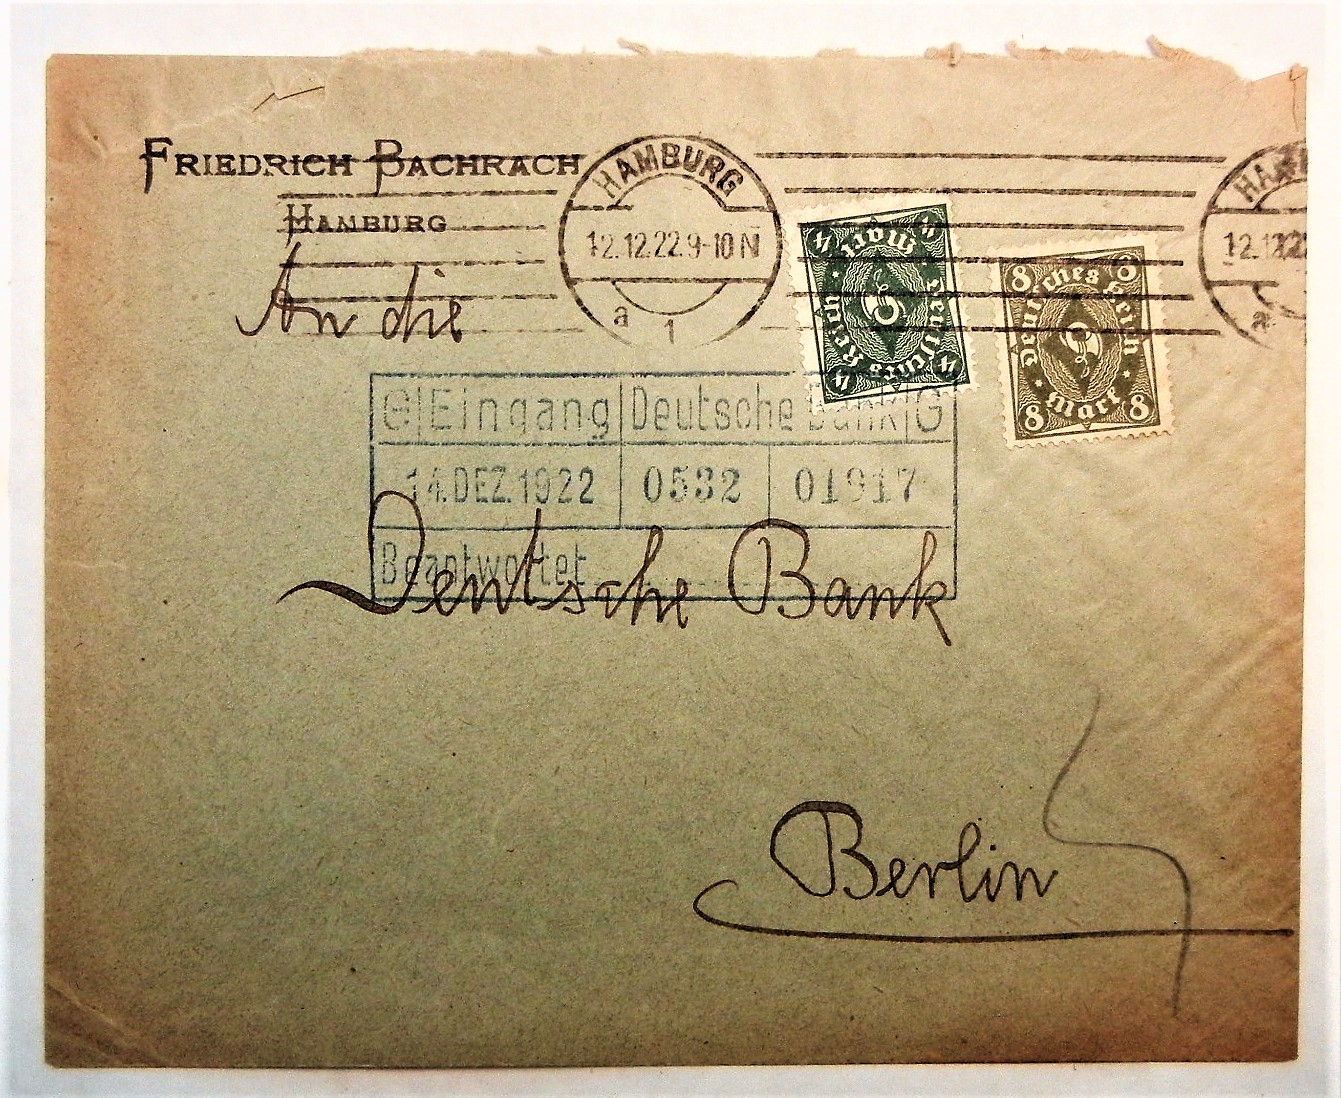 FRIEDRICH BACHRACH
HAMBURG
HAMBURG
12.12.22.9-10 N
a 1
HAM
12.12.22
a
4 4
Mark
Deutsches Reich
4 4
8 8
Deutsches Reich
Mark
8 8
An die
G Eingang Deutsche Bank G
14. DEZ. 1922 0532 01917
Beantwortet
Deutsche Bank
Berlin